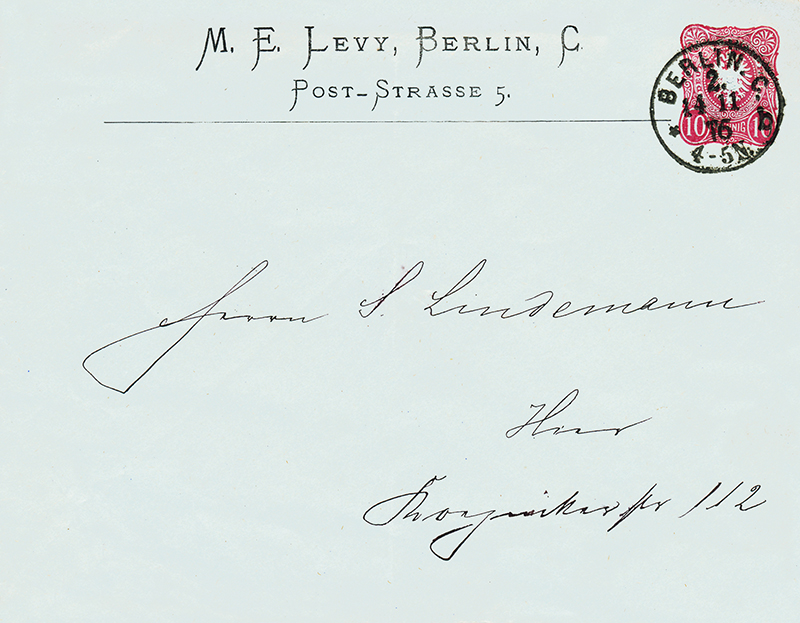 M. E. LEVY, BERLIN, C.
POST-STRASSE 5.
BERLIN, C.
2.
14 11
76
4-5N.
b
10 10
Herrn S. Lindemann
Hier
112